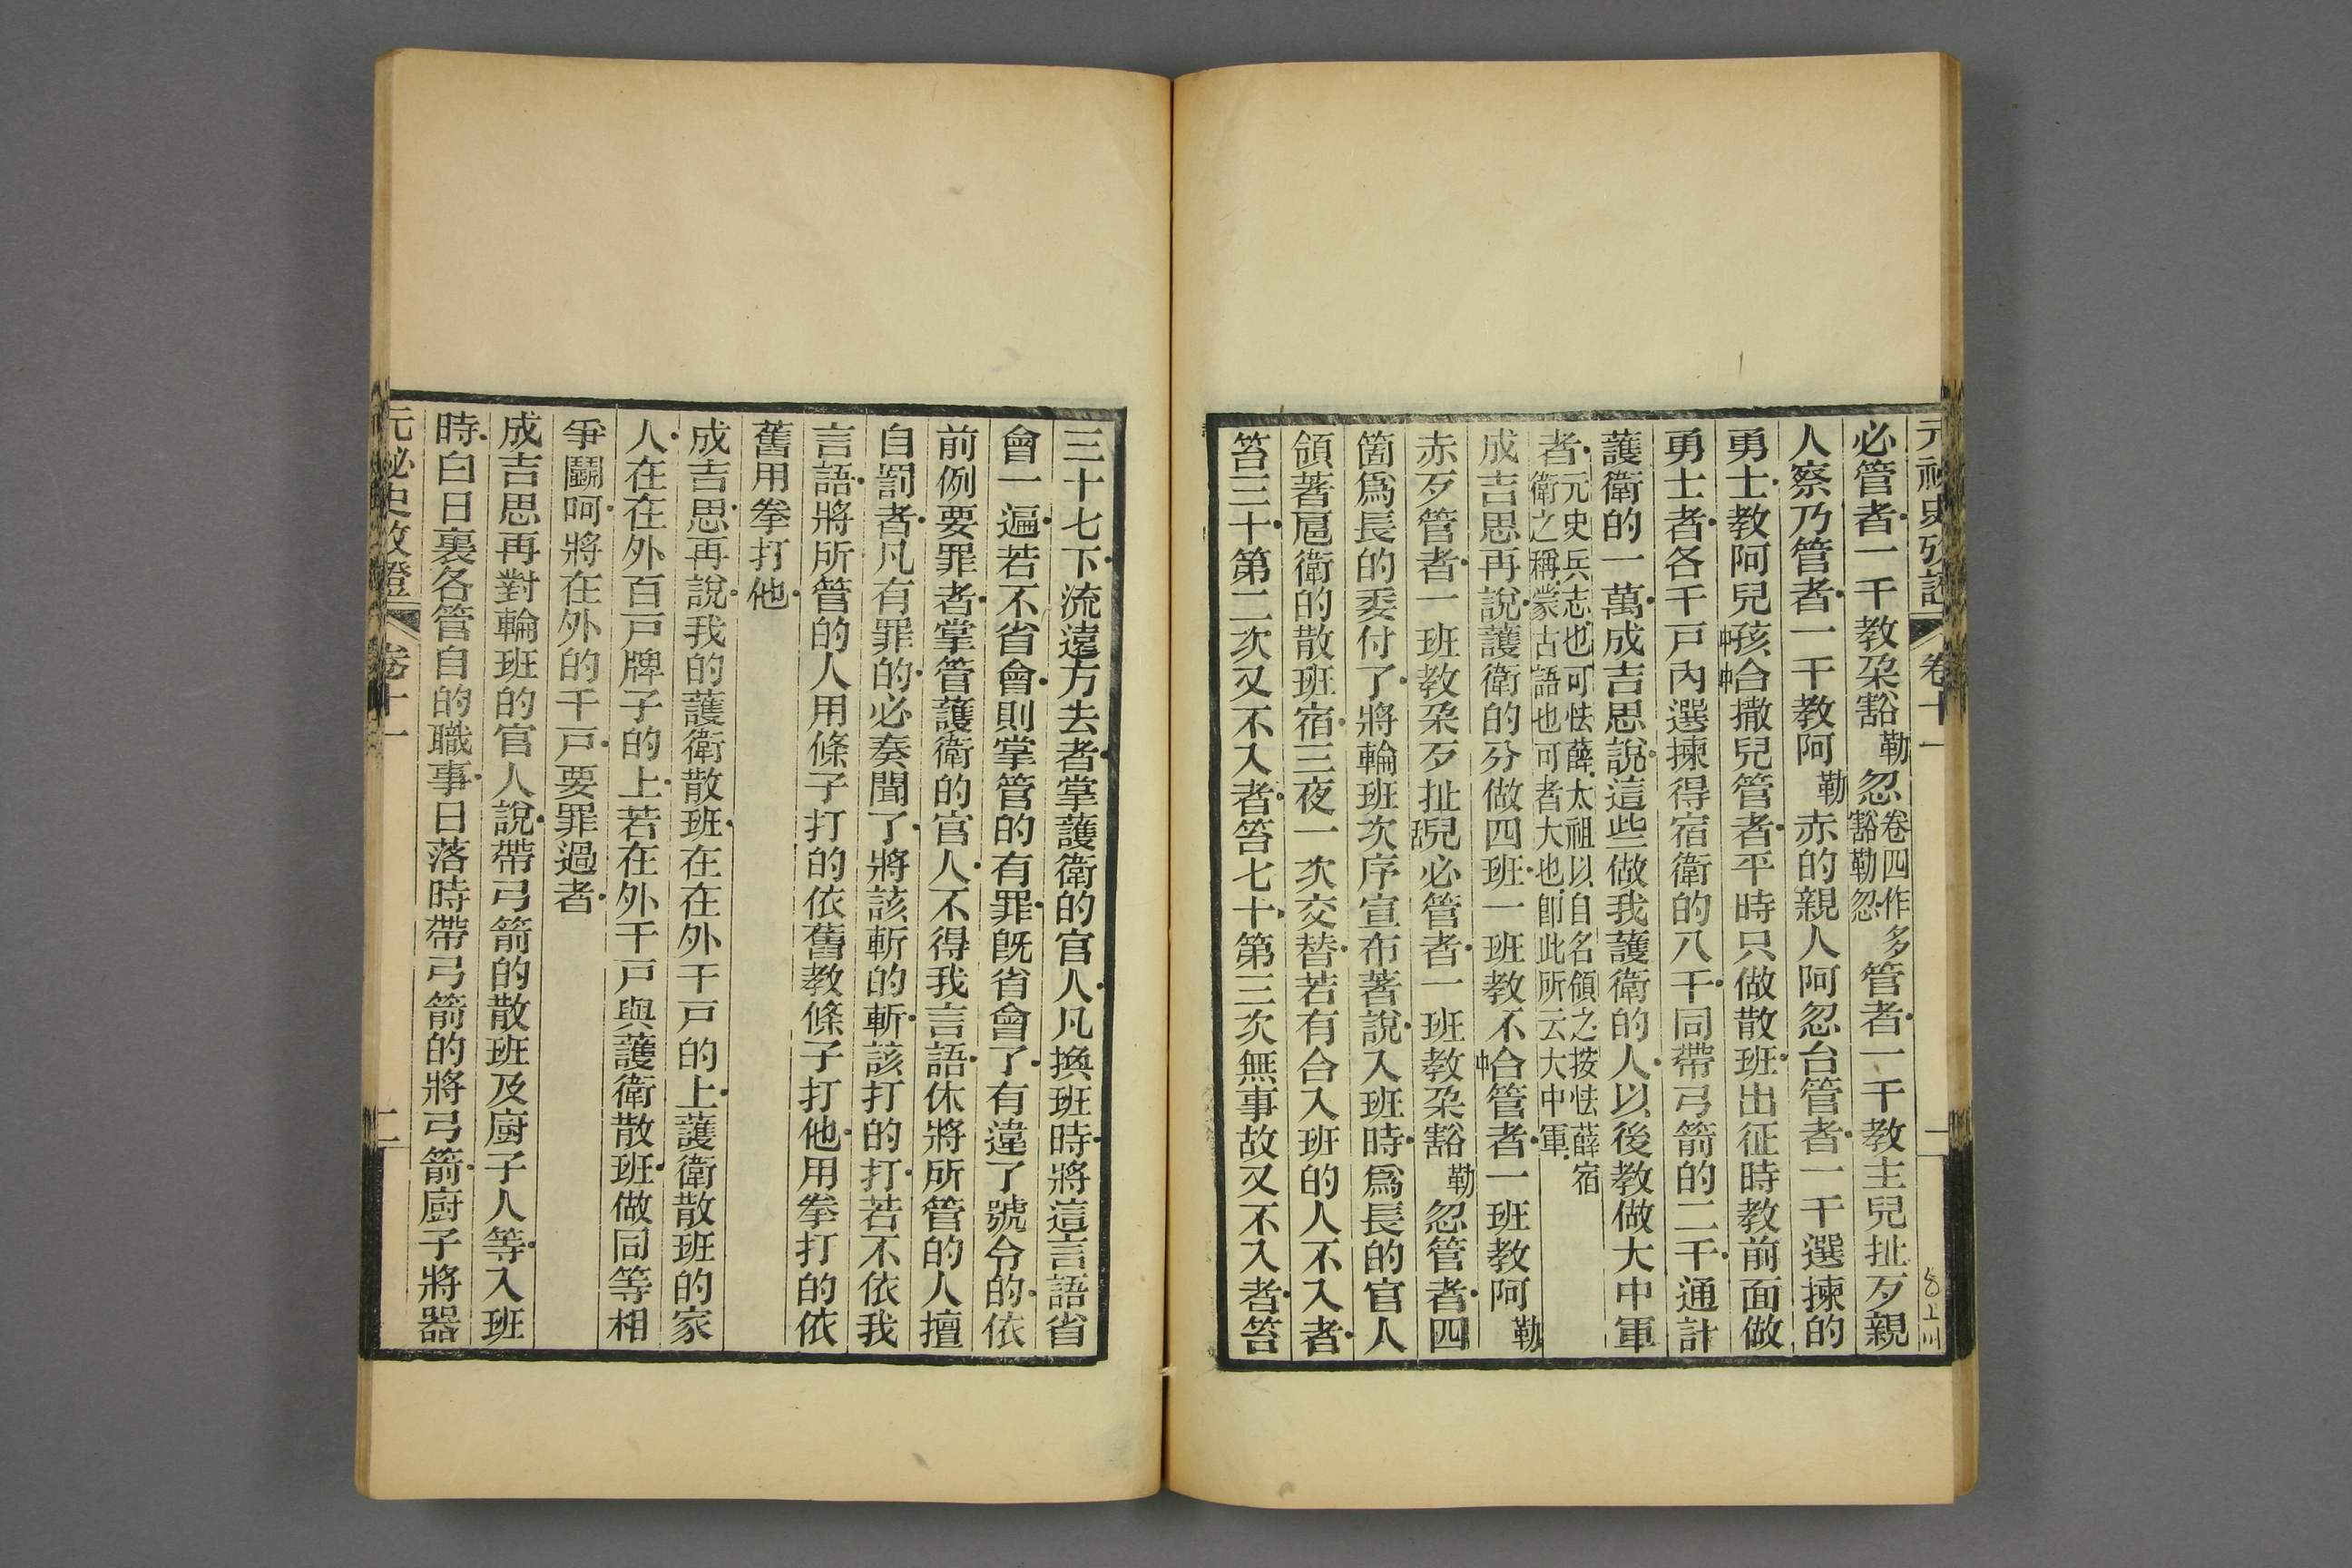 元祕史攷證 卷十一
必管者一千教朶豁勒忽卷四作豁勒忽多管者一千教主兒扯歹親
人察乃管者一千教阿勒赤的親人阿忽台管者一千選揀的
勇士教阿兒孩中合中撒兒管者平時只做散班出征時教前面做
勇士者各千戸內選揀得宿衛的八千同帶弓箭的二千通計
護衛的一萬成吉思說這些做我護衛的人以後教做大中軍
者元史兵志也可怯薛太祖以自名領之按怯薛宿衛之稱蒙古語也可者大也卽此所云大中軍
成吉思再說護衛的分做四班一班教不中合管者一班教阿勒
赤歹管者一班教朶歹扯兒必管者一班教朶豁勒忽管者四
箇爲長的委付了將輪班次序宣布著說入班時爲長的官人
領著扈衛的散班宿三夜一次交替若有合入班的人不入者
笞三十第二次又不入者笞七十第三次無事故又不入者笞
三十七下流遠方去者掌護衛的官人凡換班時將這言語省
會一遍若不省會則掌管的有罪旣省會了有違了號令的依
前例要罪者掌管護衛的官人不得我言語休將所管的人擅
自罰者凡有罪的必奏聞了將該斬的斬該打的打若不依我
言語將所管的人用條子打的依舊教條子打他用拳打的依
舊用拳打他
成吉思再說我的護衛散班在在外千戸的上護衛散班的家
人在在外百戸牌子的上若在外千戸與護衛散班做同等相
爭鬭呵將在外的千戸要罪過者
成吉思再對輪班的官人說帶弓箭的散班及廚子人等入班
時白日裏各管自的職事日落時帶弓箭的將弓箭廚子將器
元祕史攷證 卷十一 二